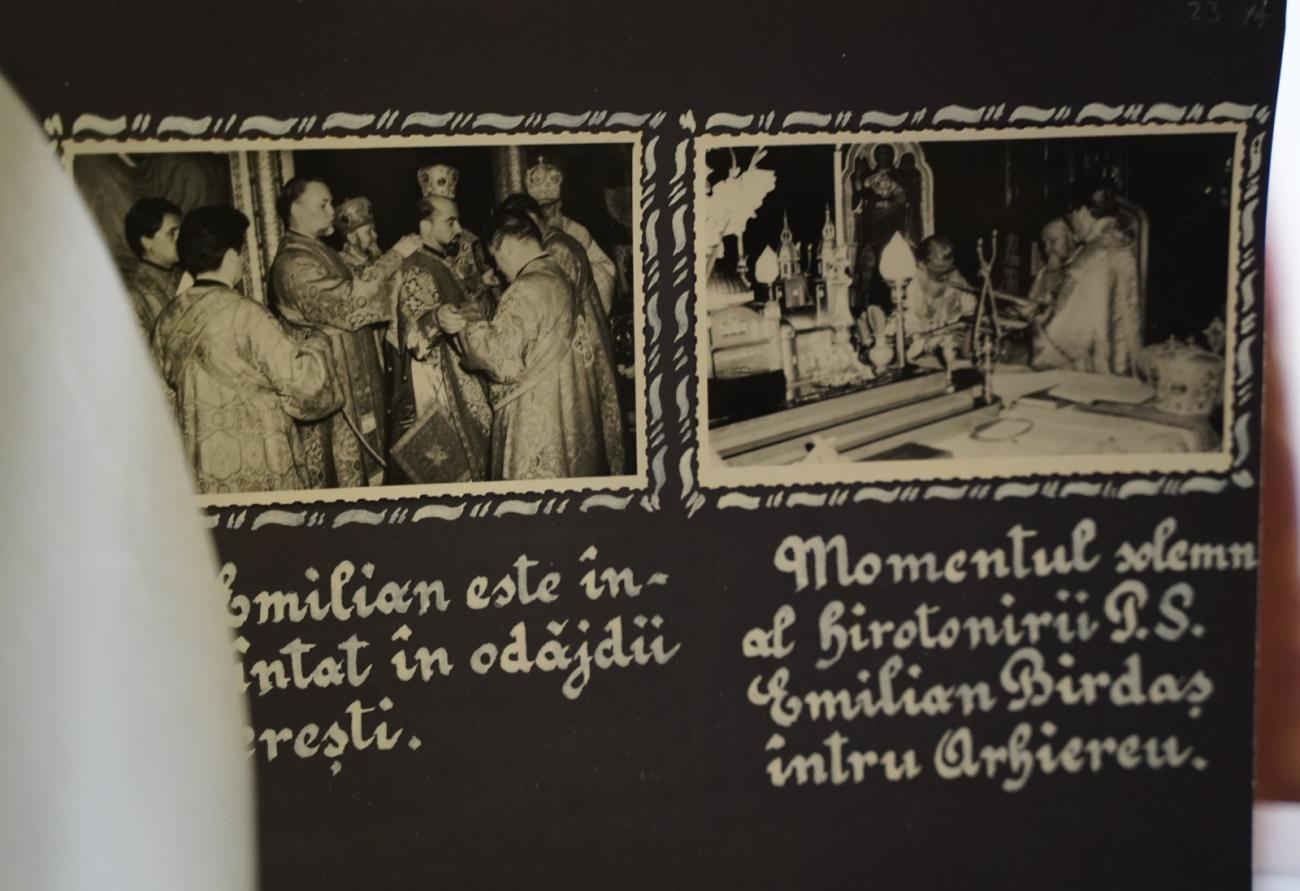 Emilian este în-
întat în odăjdii
erești.
Momentul solemn
al hirotonirii P.S.
Emilian Birdaș
întru Arhiereu.